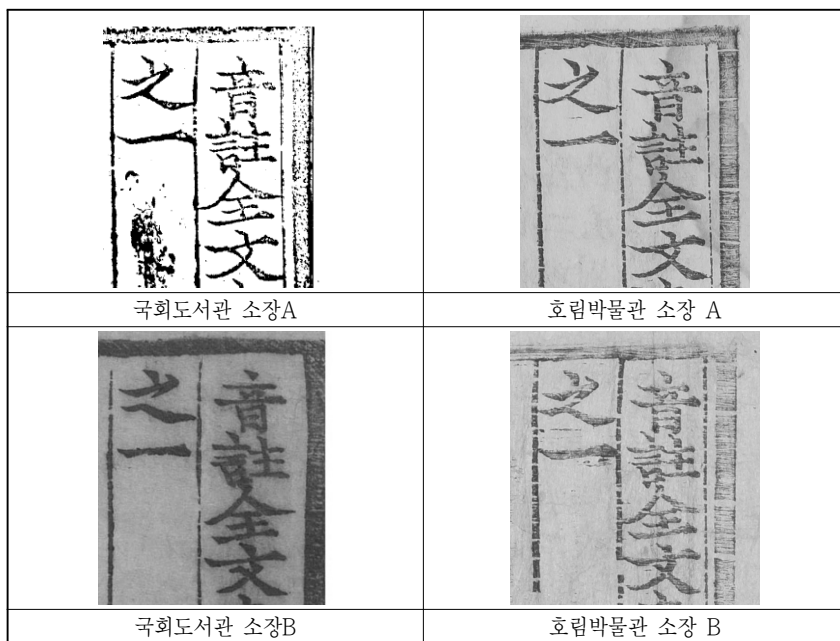 音註全文
之一
音註全文
之一
국회도서관 소장A
호림박물관 소장 A
音註全文
之一
音註全文
之一
국회도서관 소장B
호림박물관 소장 B